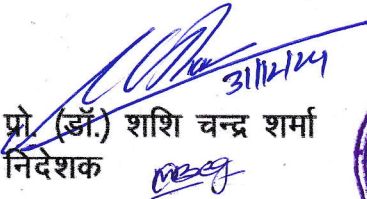 31/12/24
प्रो. (डॉ.) शशि चन्द्र शर्मा
निदेशक